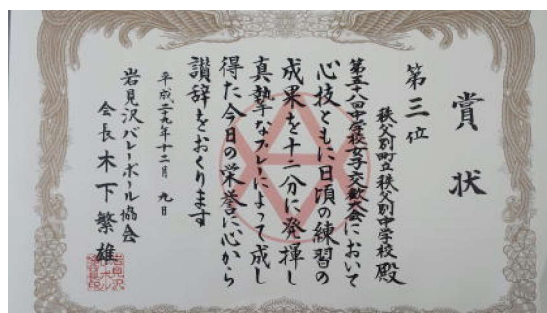 賞状
第三位
秩父別町立秩父別中学校殿
第五十八回中学校女子交歓大会において
心技ともに日頃の練習の
成果を十二分に発揮し
真摯なプレーによって成し
得た今日の栄誉に心から
讃辞をおくります
平成二九年十二月九日
岩見沢バレーボール協会
会長木下繁雄